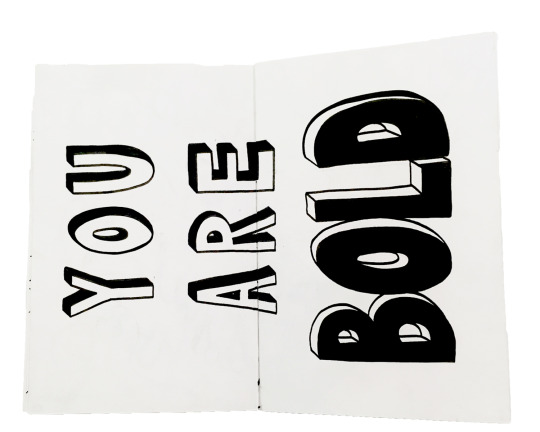 YOU
ARE
BOLD